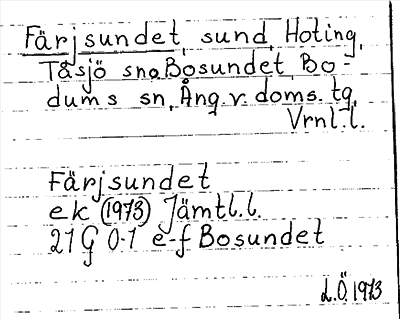 Färjsundet, sund, Hoting,
Tåsjö sn o Bosundet, Bo-
dums sn, Ång. v. doms. tg,
Vrnl. l.
Färjsundet
ek (1973) Jämtl. l.
21 G 0-1 e-f Bosundet
L.Ö. 1973